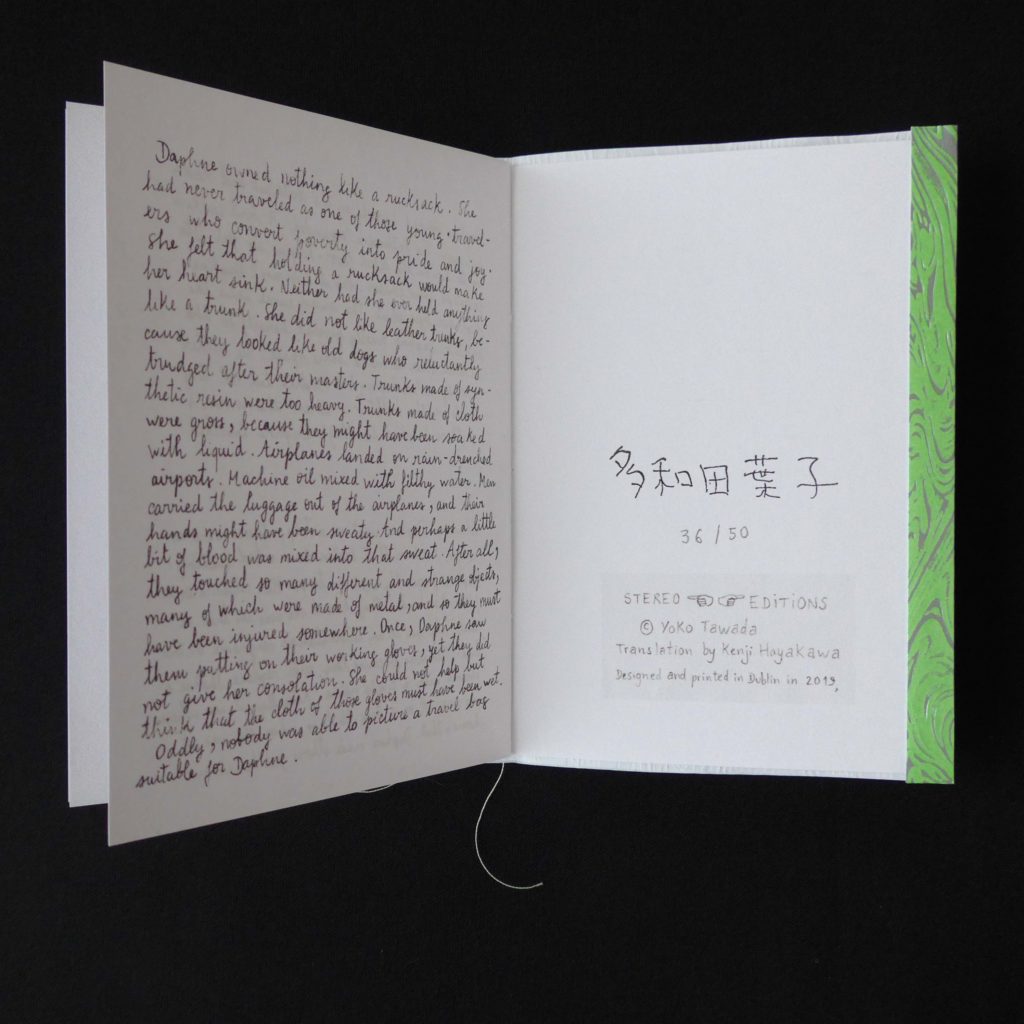 Daphne owned nothing like a rucksack. She
had never traveled as one of those young travel-
ers who convert poverty into pride and joy.
She felt that holding a rucksack would make
her heart sink. Neither had she ever held anything
like a trunk. She did not like leather trunks, be-
cause they looked like old dogs who reluctantly
trudged after their masters. Trunks made of syn-
thetic resin were too heavy. Trunks made of cloth
were gross, because they might have been soaked
with liquid. Airplanes landed on rain-drenched
airports. Machine oil mixed with filthy water. Men
carried the luggage out of the airplanes, and their
hands might have been sweaty. And perhaps a little
bit of blood was mixed into that sweat. After all,
they touched so many different and strange objects,
many of which were made of metal, and so they must
have been injured somewhere. Once, Daphne saw
them putting on their working gloves, yet they did
not give her consolation. She could not help but
think that the cloth of those gloves must have been wet.
Oddly, nobody was able to picture a travel bag
suitable for Daphne.
多和田葉子
36/50
STEREO EDITIONS
© Yoko Tawada
Translation by Kenji Hayakawa
Designed and printed in Dublin in 2019,